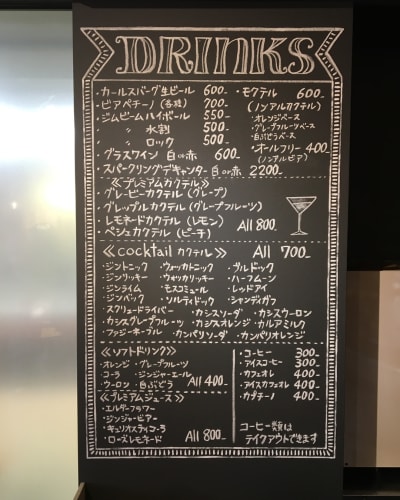 DRINKS
・カールスバーグ生ビール 600-
・ビアペチーノ(各種) 700-
・ジムビームハイボール 550-
・ 〃 水割 500-
・ 〃 ロック 500-
・グラスワイン 白or赤 600-
・スパークリングデキャンター 白or赤 2200-
・モクテル 600-
(ノンアルカクテル)
・オレンジベース
・グレープフルーツベース
・白ぶどうベース
・オールフリー 400-
(ノンアルビア)
≪プレミアムカクテル≫
・グレーピーカクテル(グレープ)
・グレップルカクテル(グレープフルーツ)
・レモネードカクテル(レモン)
・ペシェカクテル(ピーチ)
All 800-
≪cocktail カクテル≫ All 700-
・ジントニック ・ウォッカトニック ・ブルドッグ
・ジンリッキー ・ウォッカリッキー ・ハーフムーン
・ジンライム ・モスコミュール ・レッドアイ
・ジンバック ・ソルティドック ・シャンディガフ
・スクリュードライバー ・カシスソーダ ・カシスウーロン
・カシスグレープフルーツ ・カシスオレンジ ・カルアミルク
・ファジーネーブル ・カンパリソーダ ・カンパリオレンジ
≪ソフトドリンク≫
・オレンジ ・グレープフルーツ
・コーラ ・ジンジャーエール
・ウーロン ・白ぶどう All 400-
≪プレミアムジュース≫
・エルダーフラワー
・ジンジャービアー
・キュリオスティコーラ
・ローズレモネード All 800-
・コーヒー 300-
・アイスコーヒー 300-
・カフェオレ 400-
・アイスカフェオレ 400-
・カプチーノ 400-
コーヒー類は
テイクアウトできます